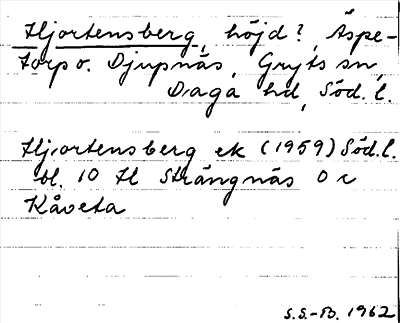 Hjortensberg, höjd?, Äspe-
torp o. Djupnäs, Gryts sn,
Daga hd, Söd. l.
Hjortensberg ek (1959) Söd. l.
bl. 10 H Strängnäs O c
Kåveta
S.S.-B. 1962